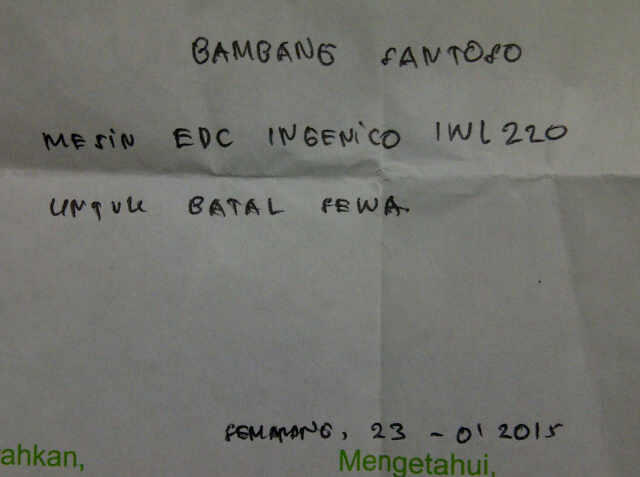 BAMBANG SANTOSO
MESIN EDC INGENICO IWL220
UNTUK BATAL SEWA
SEMARANG, 23 - 01 2015
ahkan, Mengetahui,